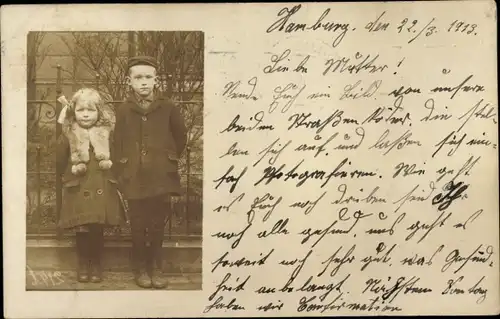 Hamburg, den 22./3. 1913.
Liebe Mutter!
Sende Euch ein Bild von unsere
beiden Straßenköter, die stel-
len sich auf und laßen sich ein-
fach Photografieren. Wie geht
es Euch noch drüben seid Ihr
noch alle gesund, uns geht es
soweit noch sehr gut, was Gesund-
heit anbelangt. Nächsten Sontag
haben wir Confirmation